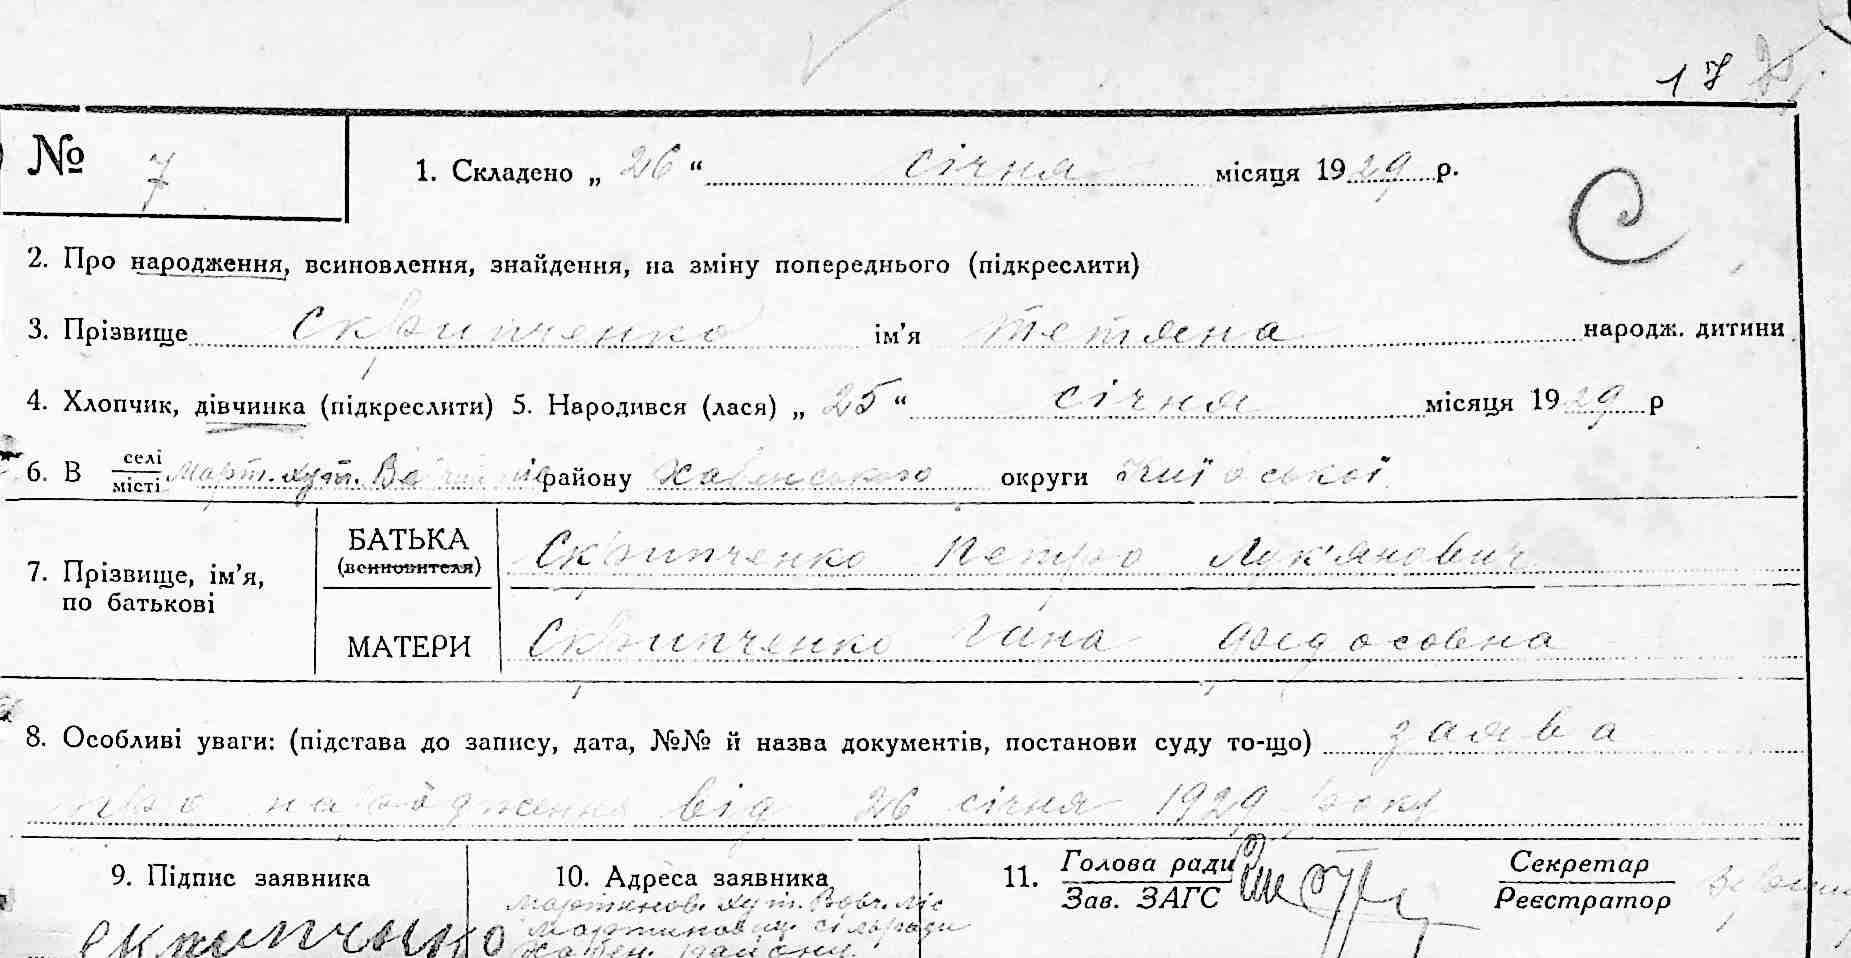 17
№ 7
1. Складено „ 26 “ січня місяця 1929 р.
С
2. Про народження, всиновлення, знайдення, на зміну попереднього (підкреслити)
3. Прізвище Скрипченко ім’я Тетяна народж. дитини
4. Хлопчик, дівчинка (підкреслити) 5. Народився (лася) „ 25 “ січня місяця 1929 р
6. В селі місті Март. хут. району Хабенського округи Київської
7. Прізвище, ім’я, по батькові
БАТЬКА (всиновителя) Скрипченко Петро Лук'янович
МАТЕРИ Скрипченко Гана Федосовна
8. Особливі уваги: (підстава до запису, дата, №№ й назва документів, постанови суду то-що) заява
про народження від 26 січня 1929 року
9. Підпис заявника
Скрипченко
10. Адреса заявника
Мартинов. хут. Вовч. ліс
Мартиновиц. сільради
Хабен. району
11. Голова ради Зав. ЗАГС
Секретар Реєстратор